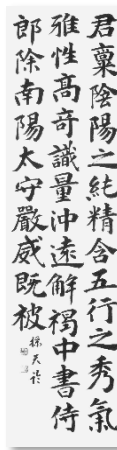 君稟陰陽之純精含五行之秀氣
雅性高奇識量沖遠解褐中書侍
郎除南陽太守嚴威既被